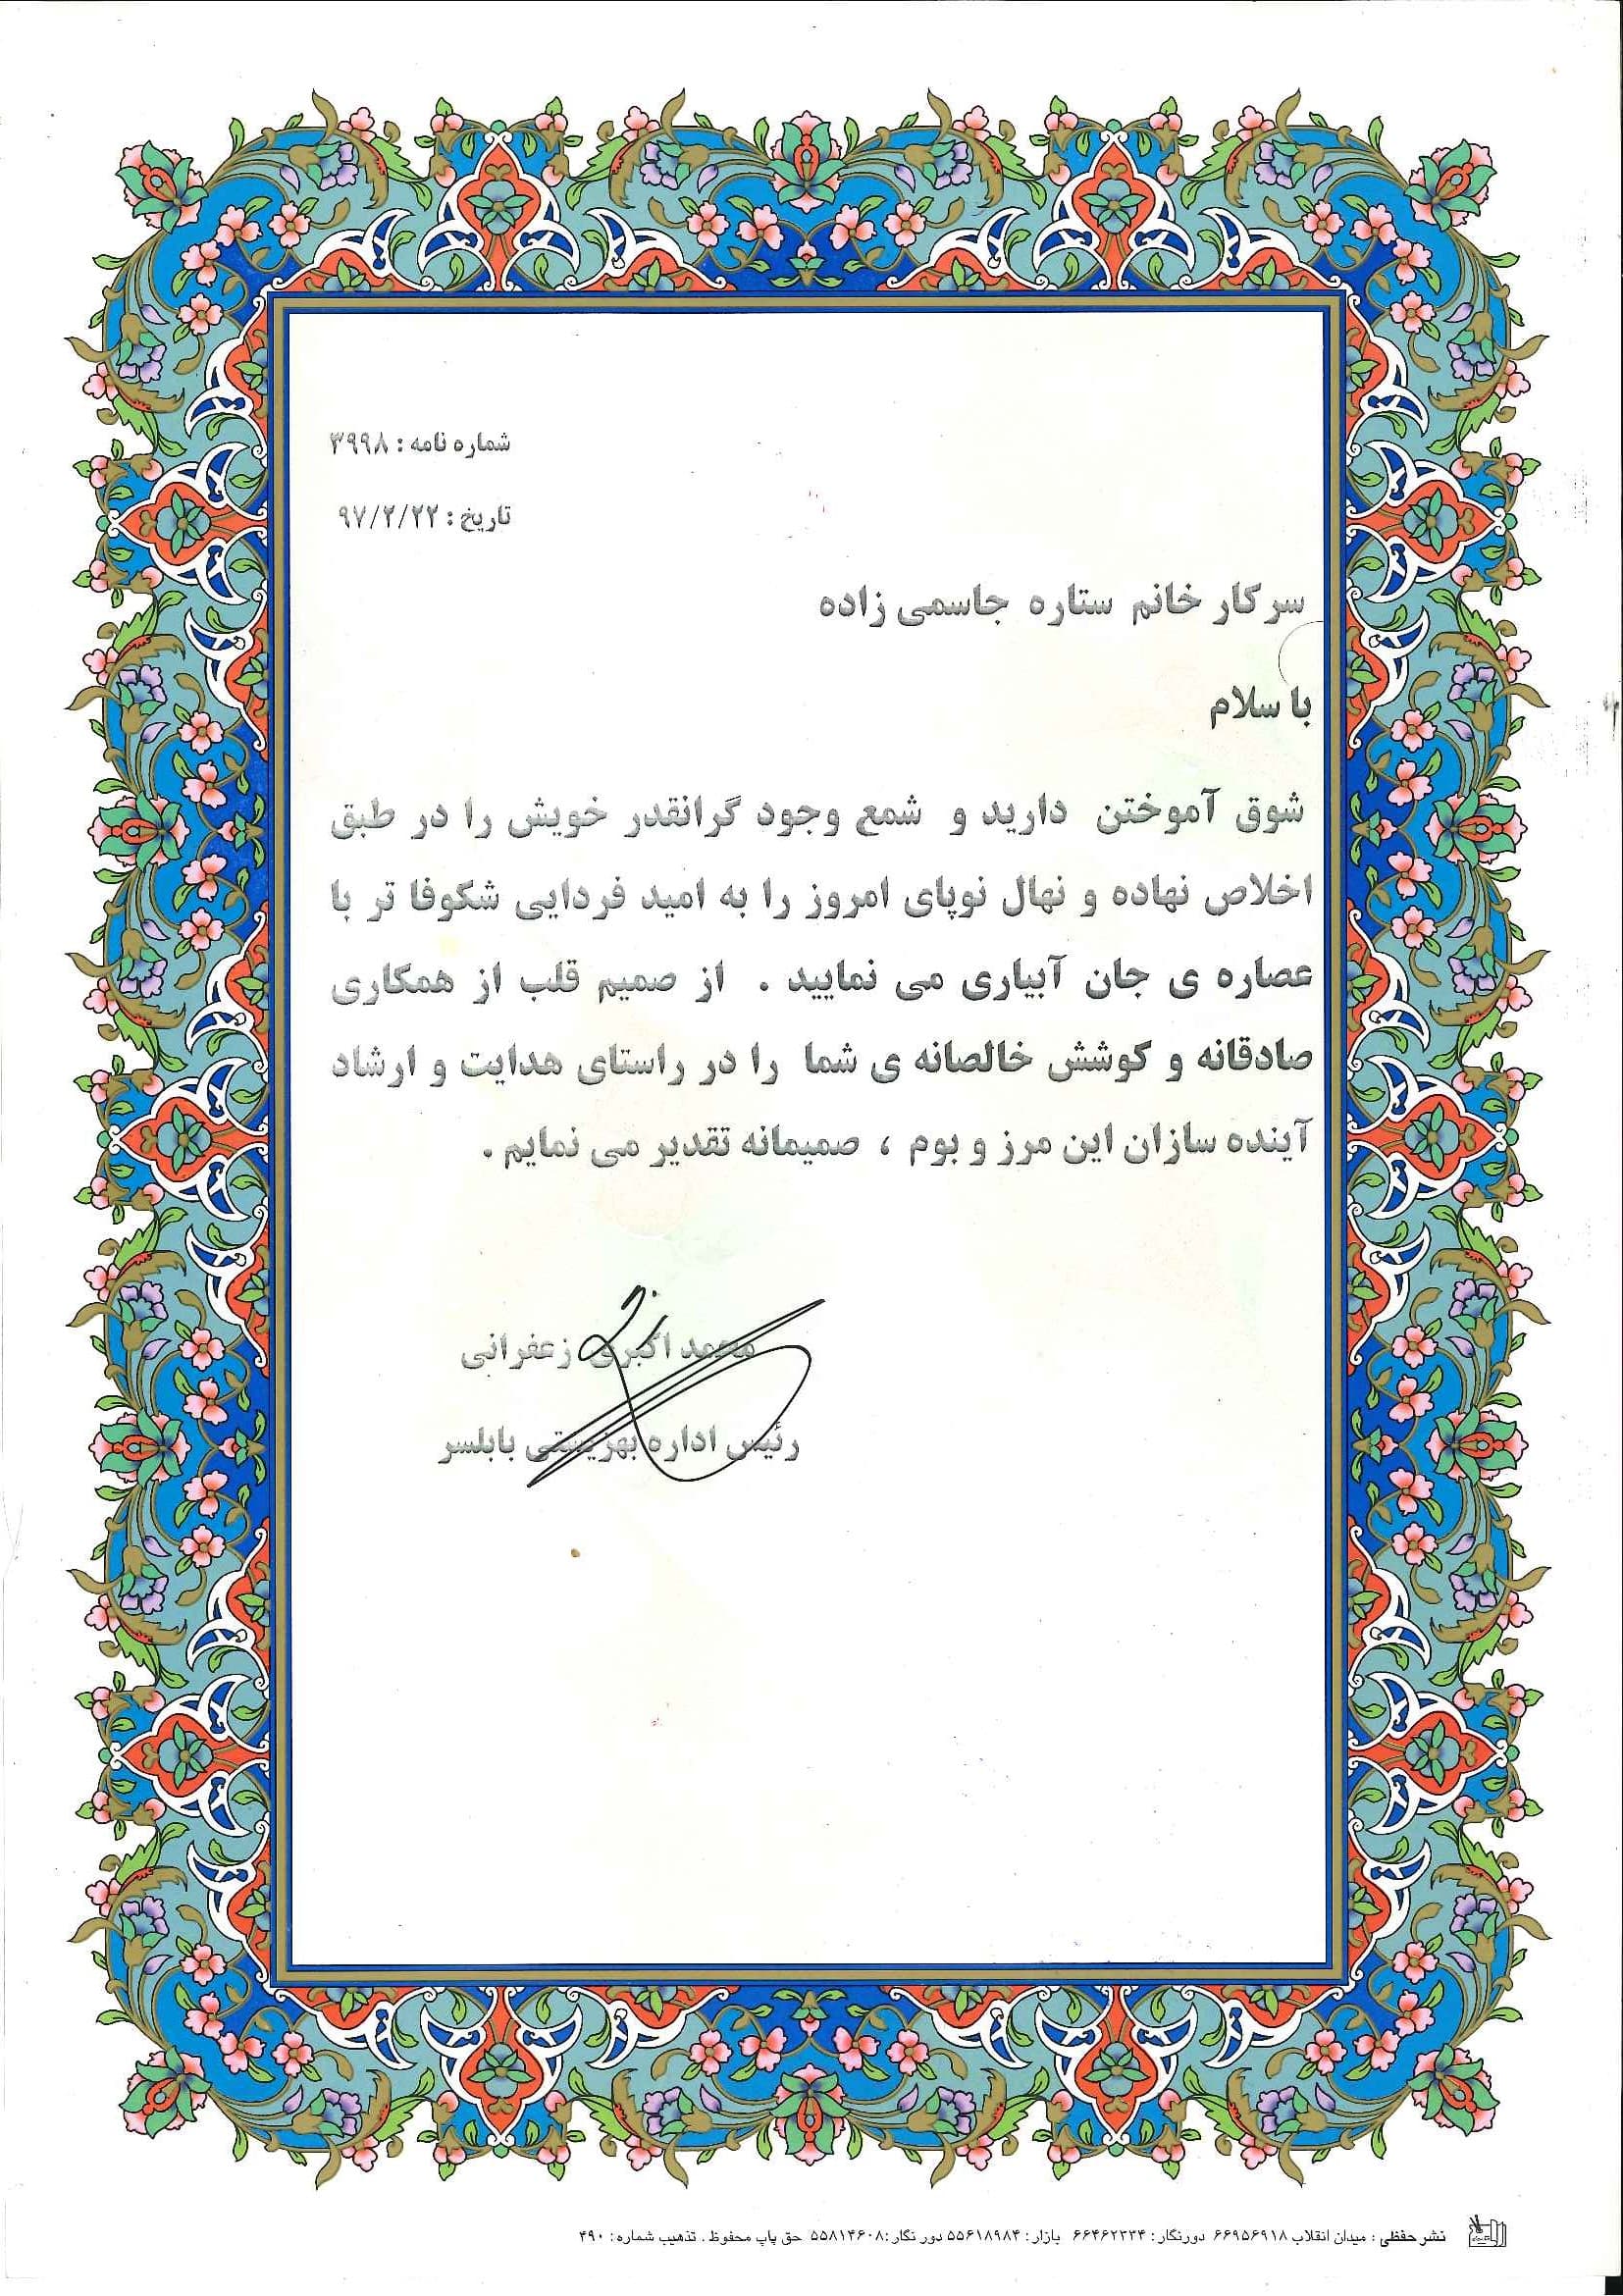 شماره نامه : ۳۹۹۸
تاریخ : ۹۷/۲/۲۲
سرکار خانم ستاره جاسمی زاده
با سلام
شوق آموختن دارید و شمع وجود گرانقدر خویش را در طبق
اخلاص نهاده و نهال نوپای امروز را به امید فردایی شکوفا تر با
عصاره ی جان آبیاری می نمایید . از صمیم قلب از همکاری
صادقانه و کوشش خالصانه ی شما را در راستای هدایت و ارشاد
آینده سازان این مرز و بوم ، صمیمانه تقدیر می نمایم .
محمد اکبری زعفرانی
رئیس اداره بهزیستی بابلسر
نشر حفظی : میدان انقلاب ۶۶۹۵۶۹۱۸ دورنگار : ۶۶۴۶۲۲۳۴ بازار : ۵۵۶۱۸۹۸۴ دور نگار : ۵۵۸۱۴۶۰۸ حق چاپ محفوظ . تذهیب شماره : ۴۹۰